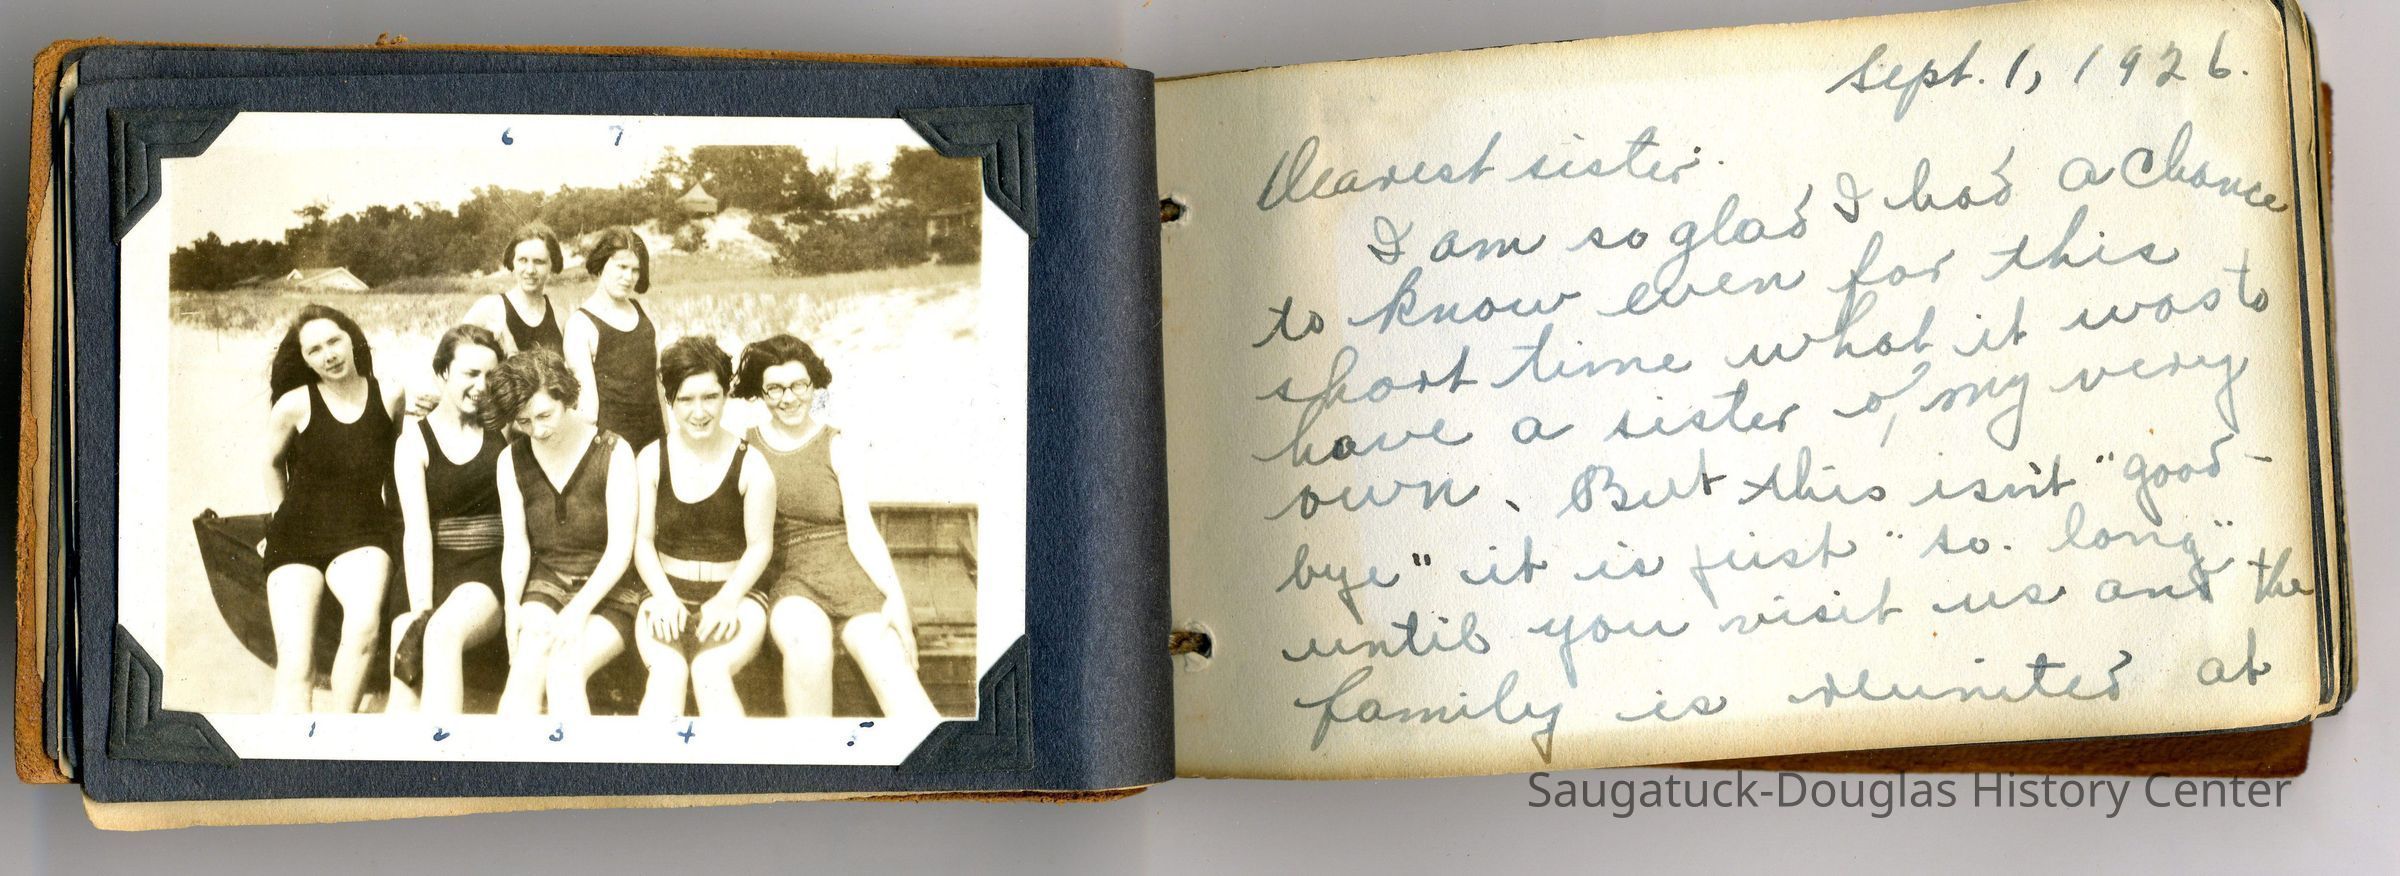 6 7
1 2 3 4 5
Sept. 1, 1926.
Dearest sister.
I am so glad I had a chance
to know even for this
short time what it was to
have a sister o' my very
own. But this isn't "good-
bye" it is just "so. long"
until you visit us and the
family is reunited at
Saugatuck-Douglas History Center